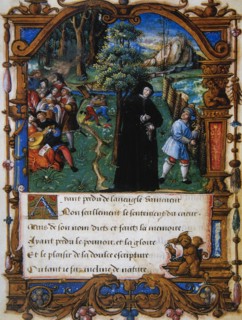 Ayant perdu de laueugle vaincueur
Non seullement le sentement du cueur
Mais de son nom dictz et faictz la memoire
Ayant perdu le pouuoir et la gloire
Et le plaisir de la doulce escripture
Ou tant je suz incline de nature